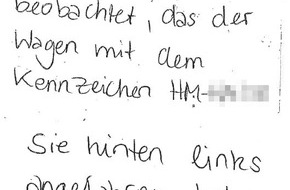 beobachtet, das der
Wagen mit dem
Kennzeichen HM-
Sie hinten links
angefahren hat